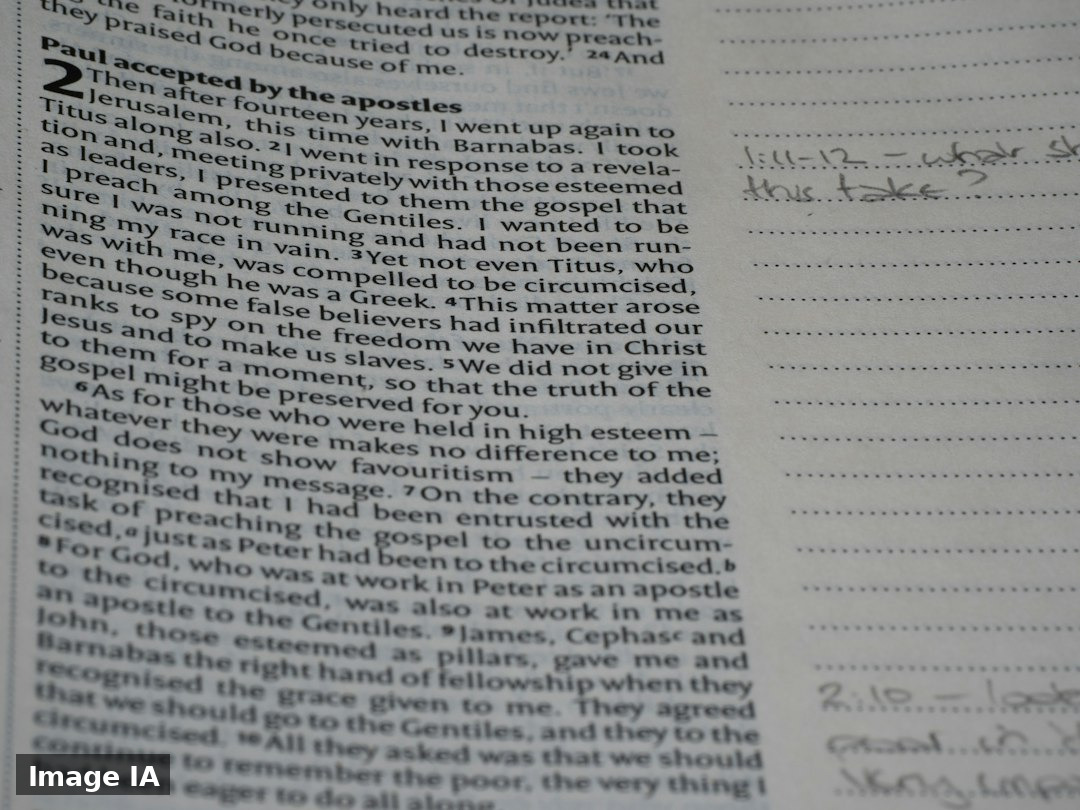 they only heard the report: ‘The
formerly persecuted us is now preach-
the faith he once tried to destroy.’ 24 And
they praised God because of me.
Paul accepted by the apostles
2 Then after fourteen years, I went up again to
Jerusalem, this time with Barnabas. I took
Titus along also. 2 I went in response to a revela-
tion and, meeting privately with those esteemed
as leaders, I presented to them the gospel that
I preach among the Gentiles. I wanted to be
sure I was not running and had not been run-
ning my race in vain. 3 Yet not even Titus, who
was with me, was compelled to be circumcised,
even though he was a Greek. 4 This matter arose
because some false believers had infiltrated our
ranks to spy on the freedom we have in Christ
Jesus and to make us slaves. 5 We did not give in
to them for a moment, so that the truth of the
gospel might be preserved for you.
6 As for those who were held in high esteem –
whatever they were makes no difference to me;
God does not show favouritism – they added
nothing to my message. 7 On the contrary, they
recognised that I had been entrusted with the
task of preaching the gospel to the uncircum-
cised,a just as Peter had been to the circumcised.b
8 For God, who was at work in Peter as an apostle
to the circumcised, was also at work in me as
an apostle to the Gentiles. 9 James, Cephasc and
John, those esteemed as pillars, gave me and
Barnabas the right hand of fellowship when they
recognised the grace given to me. They agreed
that we should go to the Gentiles, and they to the
circumcised. 10 All they asked was that we should
continue to remember the poor, the very thing I
eager to do all along.
1:11-12 – what sh
this take?
2:10 –
Image IA